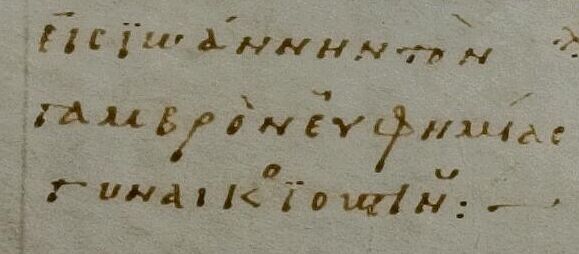 εἰς ϊωάννην τὸν
γαμβρὸν εὐφημίας
γυναικο ϊουστίν: